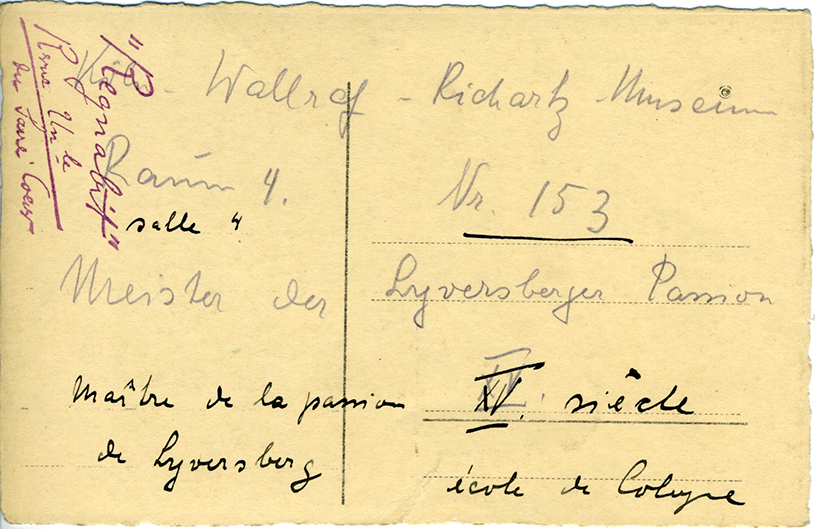 "Regnabit"
Revue Un le
du Sacré Coeur
Köln - Wallraf - Richartz Museum
Raum 4. Nr. 153
salle 4
Meister der Lyversberger Passion
Maître de la passion XV. siècle
de Lyversberg école de Cologne